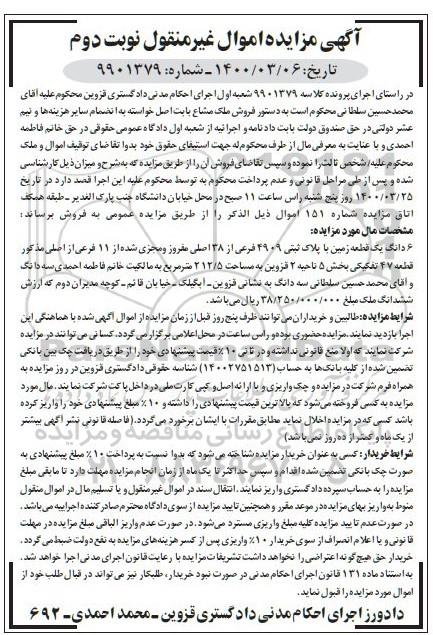 آگهی مزایده اموال غیرمنقول نوبت دوم
تاریخ: ۱۴۰۰/۰۳/۰۶ - شماره: ۹۹۰۱۳۷۹
در راستای اجرای پرونده کلاسه ۹۹۰۱۳۷۹ شعبه اول اجرای احکام مدنی دادگستری قزوین محکوم علیه آقای
محمدحسین سلطانی محکوم است به دستور فروش ملک مشاع بابت اصل خواسته به انضمام سایر هزینه ها و نیم
عشر دولتی در حق صندوق دولت بابت دادنامه و اجرائیه از شعبه اول دادگاه عمومی حقوقی در حق خانم فاطمه
احمدی و با عنایت به معرفی مال از طرف محکوم له جهت استیفای حقوق خود بدوا تقاضای توقیف اموال و ملک
محکوم علیه/ شخص ثالث را نموده و سپس تقاضای فروش آن را از طریق مزایده که به شرح و میزان ذیل کارشناسی
شده و پس از طی مراحل قانونی و عدم پرداخت محکوم به توسط محکوم علیه این اجرا قصد دارد در تاریخ
۱۴۰۰/۰۳/۲۵ روز پنج شنبه راس ساعت ۱۱ صبح در محل خیابان دانشگاه جنب پارک الغدیر - طبقه همکف
اتاق مزایده شماره ۱۵۱ اموال ذیل الذکر را از طریق مزایده عمومی به فروش برساند:
مشخصات مال مورد مزایده:
۶ دانگ یک قطعه زمین با پلاک ثبتی ۴۹۰۹ فرعی از ۳۸ اصلی مفروز ومجزی شده از ۱۱ فرعی از اصلی مذکور
قطعه ۴۷ تفکیکی بخش ۵ ناحیه ۲ قزوین به مساحت ۲۱۲/۵ مترمربع به مالکیت خانم فاطمه احمدی سه دانگ
و آقای محمدحسین سلطانی سه دانگ به نشانی قزوین - ایگلک - خیابان قائم - کوچه مدبران دوم که ارزش
ششدانگ ملک مبلغ ۳۸/۲۵۰/۰۰۰/۰۰۰ ریال می باشد.
شرایط مزایده: طالبین و خریداران می توانند ظرف پنج روز قبل از زمان مزایده از اموال آگهی شده با هماهنگی این
اجرا بازدید نمایند. مزایده حضوری بوده و راس ساعت در محل اعلامی برگزار می گردد. کسانی می توانند در مزایده
شرکت نمایند که اولا منع قانونی نداشته و در ثانی ۱۰٪ قیمت پیشنهادی خود را از طریق دریافت چک بین بانکی
تضمین شده از کلیه بانک ها به حساب (۱۴۰۰۲۷۵۱۵۱۳) شناسه حقوقی دادگستری قزوین در روز مزایده به
همراه فرم شرکت در مزایده و چک واریزی و با ارائه اصل و کپی کارت ملی در داخل پاکت شرکت نمایند. مال مورد
مزایده به کسی فروخته می شود که بالاترین قیمت پیشنهادی را داشته و ۱۰٪ مبلغ پیشنهادی خود را واریز کرده
باشد کسی که در مزایده اخلال نماید مطابق مقررات با ایشان برخورد می گردد. (فاصله قانونی نشر آگهی بیشتر
از یک ماه و کمتر از ده روز نمی باشد)
شرایط خریدار: کسی به عنوان خریدار مزایده شناخته می شود که بدوا نسبت به پرداخت ۱۰٪ مبلغ پیشنهادی به
صورت چک بانکی تضمین شده اقدام و سپس حداکثر تا یک ماه از زمان انجام مزایده مهلت دارد تا مابقی مبلغ
مزایده را به حساب سپرده دادگستری واریز نمایند. انتقال سند در اموال غیرمنقول و یا تسلیم مال در اموال منقول
منوط به واریز بهای مزایده در موعد مقرر و همچنین تایید مزایده از سوی دادگاه محترم صادرکننده اجراییه می باشد.
در صورت عدم تایید مزایده کلیه مبلغ واریزی مسترد می شود. در صورت عدم واریز الباقی مبلغ مزایده در مهلت
قانونی و یا اعلام انصراف از سوی خریدار ۱۰٪ واریزی پس از کسر هزینه های مزایده به نفع دولت ضبط می گردد.
خریدار حق هیچ گونه اعتراضی را نخواهد داشت تشریفات مزایده با رعایت قانون اجرای مدنی اجرا خواهد شد.
به استناد ماده ۱۳۱ قانون اجرای احکام مدنی در صورت نبود خریدار، طلبکار نیز می تواند در قبال طلب خود از
اموال مورد مزایده را قبول نماید.
دادورز اجرای احکام مدنی دادگستری قزوین - محمد احمدی - ۶۹۲